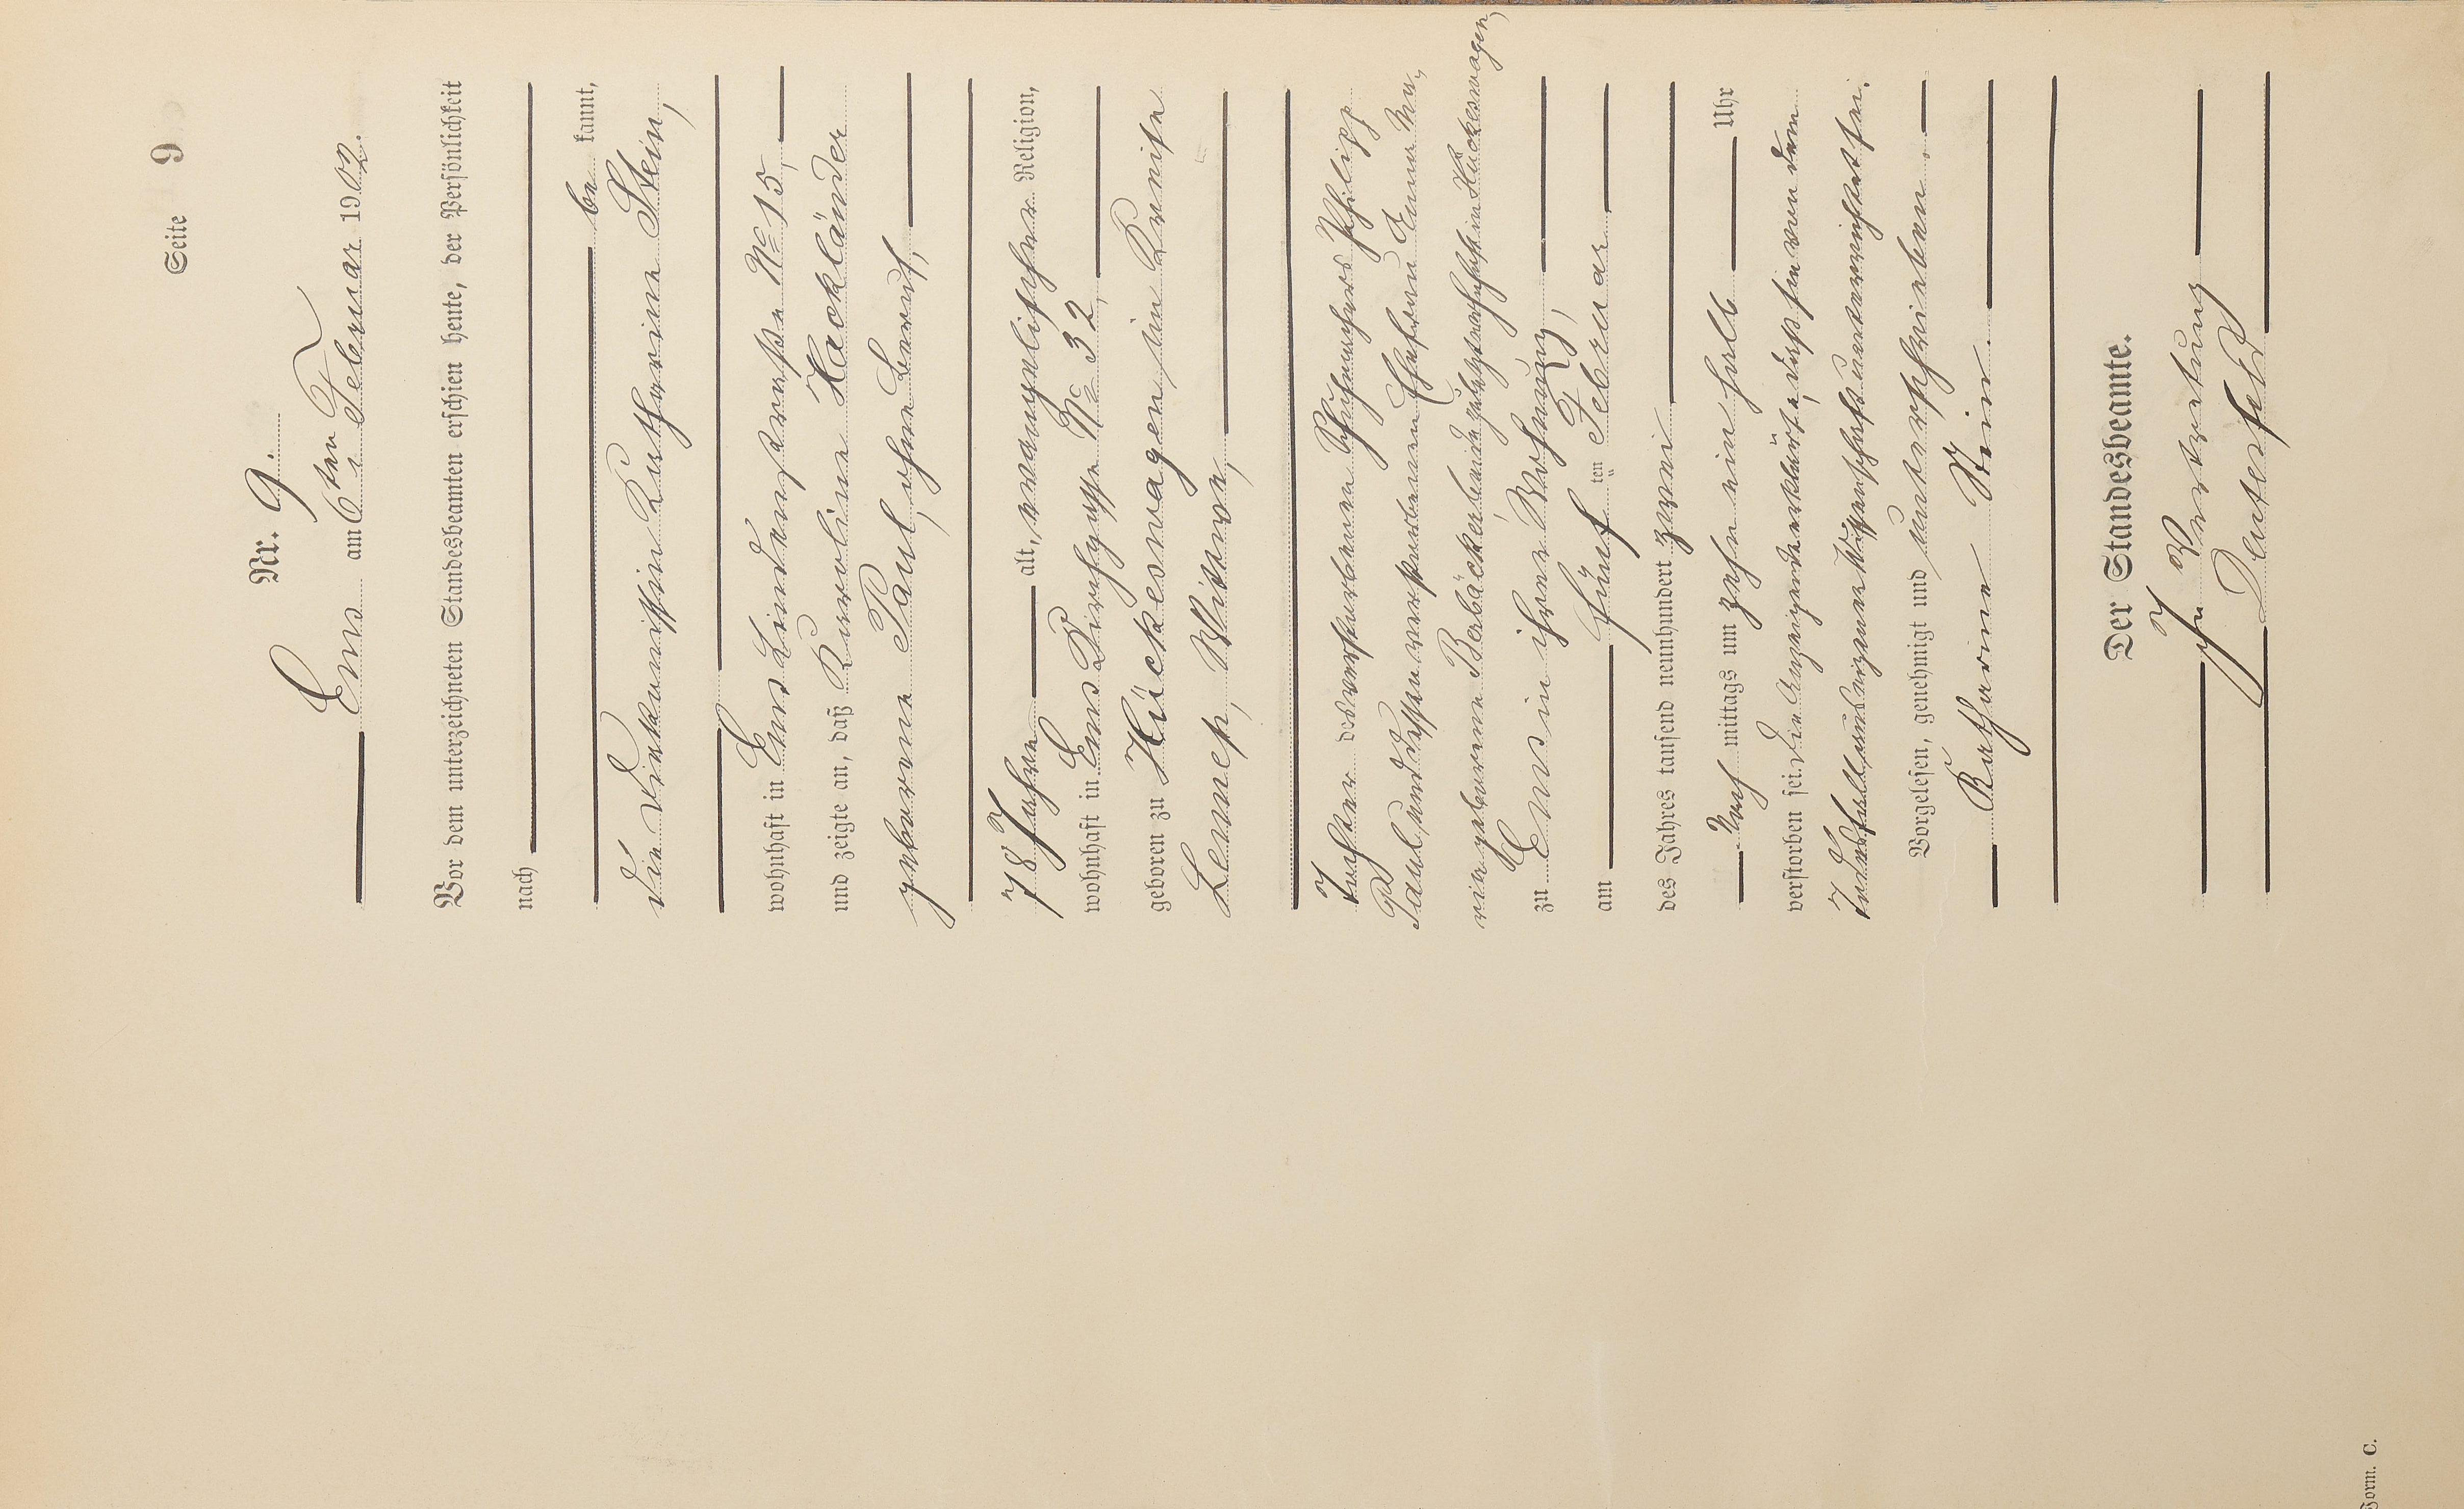 Seite 9
Nr. 9.
Ems am 6ten Februar 1902.
Vor dem unterzeichneten Standesbeamten erschien heute, der Persönlichkeit
nach
be kannt,
die Diakonissin Katharine Stein,
wohnhaft in Ems Lindenstraße No 15,
und zeigte an, daß Karoline Hackländer
geborene Paul, ohne Beruf,
78 Jahre alt, evangelischer Religion,
wohnhaft in Ems Kirchgasse No 32,
geboren zu Hückeswagen im Kreise
Lennep, Witwe,
Tochter des verstorbenen Philipp
Paul und dessen verstorbenen Ehefrau Anna Ma,
ria geborene Berbäcker beide zuletzt wohnhaft in Hückeswagen,
zu Ems in ihrer Wohnung,
am fünf ten Februar
des Jahres tausend neunhundert zwei
Nach mittags um zehn ein halb Uhr
verstorben sei. Die Anzeigende erklärte, daß sie von dem
Todesfall aus eigener Wissenschaft unterrichtet sei.
Vorgelesen, genehmigt und unterschrieben.
Katharine Stein.
Der Standesbeamte.
In Vertretung